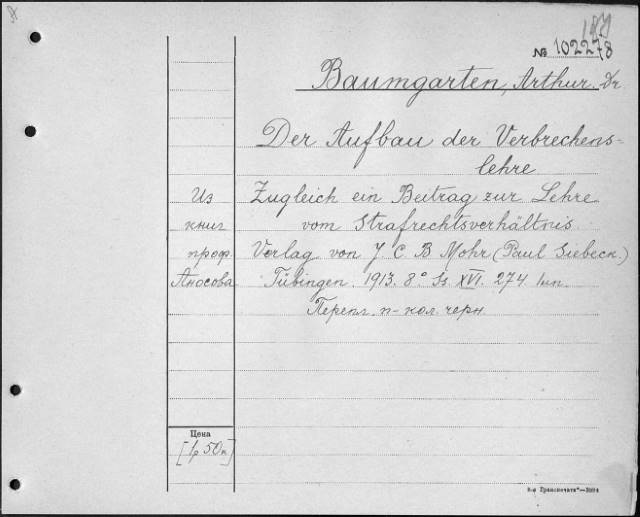 № 102278
Baumgarten, Arthur Dr
Der Aufbau der Verbrechens-
lehre
Из
книг
проф.
Аносова
Zugleich ein Beitrag zur Lehre
vom Strafrechtsverhältnis.
Verlag von J. C. B Mohr (Paul Siebeck.)
Tübingen. 1913. 8° Ss. XVI. 274. 1 нн.
Перепл. п-кол. черн.
Цена
[1р 50к]